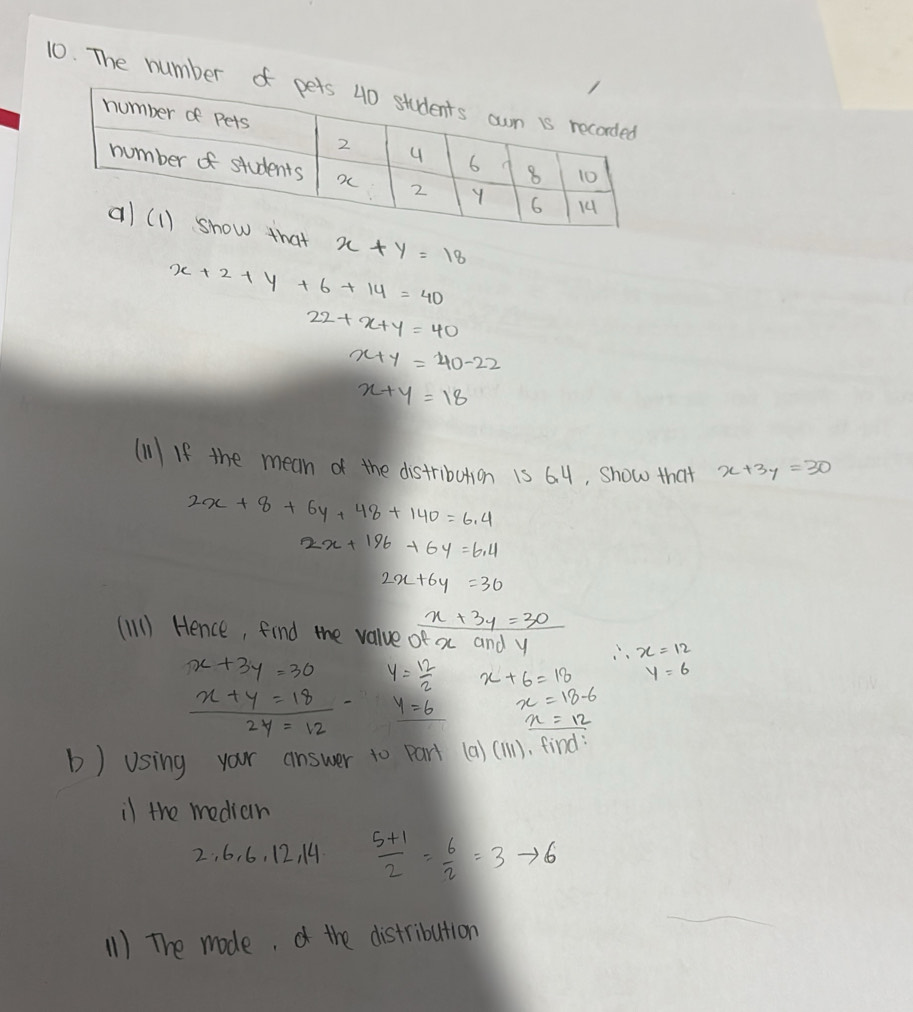 10. The number of pets 40 students own is recorded
number of Pets 2 4 6 8 10
number of students x 2 y 6 14
a) (i) Show that x + y = 18
x + 2 + y + 6 + 14 = 40
22 + x + y = 40
x + y = 40 - 22
x + y = 18
(ii) If the mean of the distribution is 6.4, Show that x + 3y = 30
2x + 8 + 6y + 48 + 140 = 6.4
2x + 196 + 6y = 6.4
2x + 6y = 30
x + 3y = 30
(iii) Hence, find the value of x and y
x + 3y = 30 y = 12/2 x + 6 = 18 ∴ x = 12
x + y = 18 - y = 6 x = 18 - 6 y = 6
2y = 12 x = 12
b) Using your answer to part (a) (iii), find:
i) the median
2, 6, 6, 12, 14. 5+1/2 = 6/2 = 3 → 6
ii) The mode, of the distribution